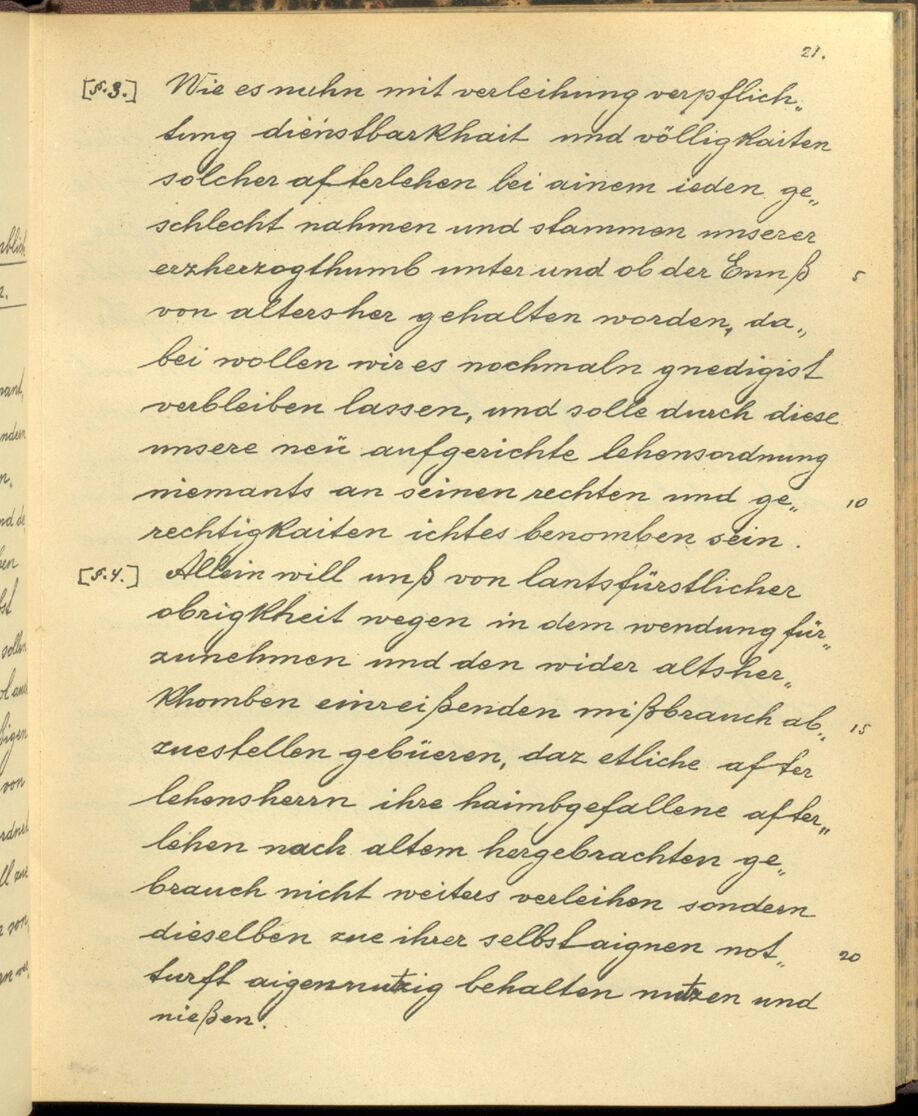 21.
[§.3.] Wie es nuhn mit verleihung verpflich„
tung dienstbarkhait und völligkaiten
solcher afterlehen bei ainem ieden ge„
schlecht nahmen und stammen unserer
erzherzogthumb unter und ob der Ennß 5
von altersher gehalten worden, da„
bei wollen wir es nochmaln gnedigist
verbleiben lassen, und solle durch diese
unsere neü aufgerichte lehensordnung
niemants an seinen rechten und ge„ 10
rechtigkaiten ichtes benomben sein.
[§.4.] Allein will unß von lantsfürstlicher
obrigkheit wegen in dem wendung für„
zunehmen und den wider altsher„
khomben einreißenden mißbrauch ab„ 15
zuestellen gebüeren, daz etliche after
lehensherrn ihre haimbgefallene after„
lehen nach altem hergebrachten ge„
brauch nicht weiters verleihen sondern
dieselben zue ihrer selbst aignen not„ 20
turft aigennutzig behalten nutzen und
nießen.